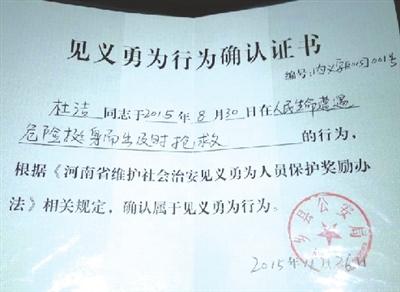 见义勇为行为确认证书
编号:内义字[2015]001号
杜洁 同志于2015年8月30日在人民生命遭遇
危险挺身而出及时抢救 的行为,
根据《河南省维护社会治安见义勇为人员保护奖励办
法》相关规定，确认属于见义勇为行为。
乡县公安局
2015年11月26日